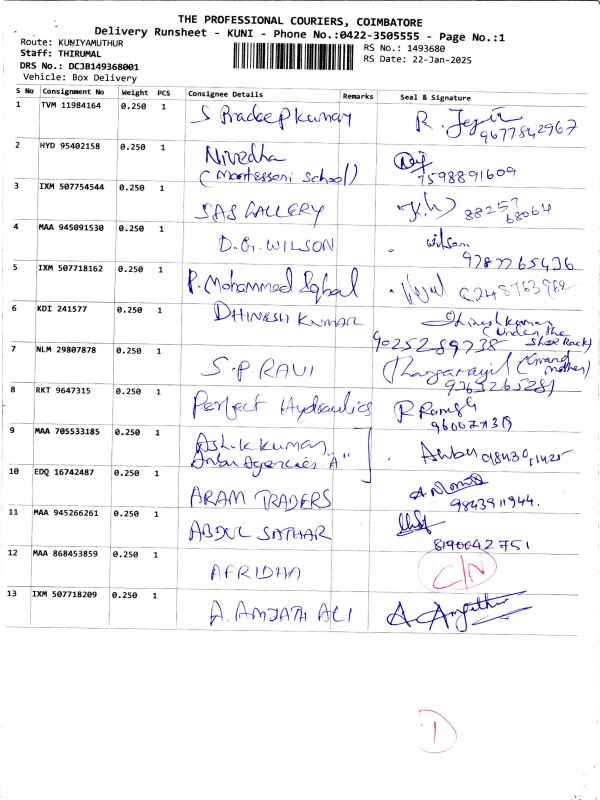 THE PROFESSIONAL COURIERS, COIMBATORE
Delivery Runsheet - KUNI - Phone No.:0422-3505555 - Page No.:1
Route: KUNIYAMUTHUR RS No.: 1493680
Staff: THIRUMAL RS Date: 22-Jan-2025
DRS No.: DCJB149368001
Vehicle: Box Delivery
S No Consignment No Weight PCS Consignee Details Remarks Seal & Signature
1 TVM 11984164 0.250 1 S Pradeep kumar R.
9677842967
2 HYD 95402158 0.250 1 Nivedha
(Montessori School) 7598891609
3 IXM 507754544 0.250 1 SAS GALLERY 88257
68064
4 MAA 945091530 0.250 1 D.G. WILSON wilson
9787765436
5 IXM 507718162 0.250 1 P. Mohammed Iqbal
6 KDI 241577 0.250 1 DHINESH KUMAR Dhinesh kumar
(under the
9025289738 Shoe Rack)
7 NLM 29807878 0.250 1 S.P RAVI (Grand
mother)
9363265281
8 RKT 9647315 0.250 1 Perfect Hydraulics R Ramesh
9 MAA 705533185 0.250 1 Ashok kumar
Anbu Agencies "A" Anbu
10 EDQ 16742487 0.250 1 ARAM TRADERS
9843911944.
11 MAA 945266261 0.250 1 ABDUL SATHAR
8190042751
12 MAA 868453859 0.250 1 AFRIDHA C/N
13 IXM 507718209 0.250 1 A. AMJATH ALI A. Amjath
1